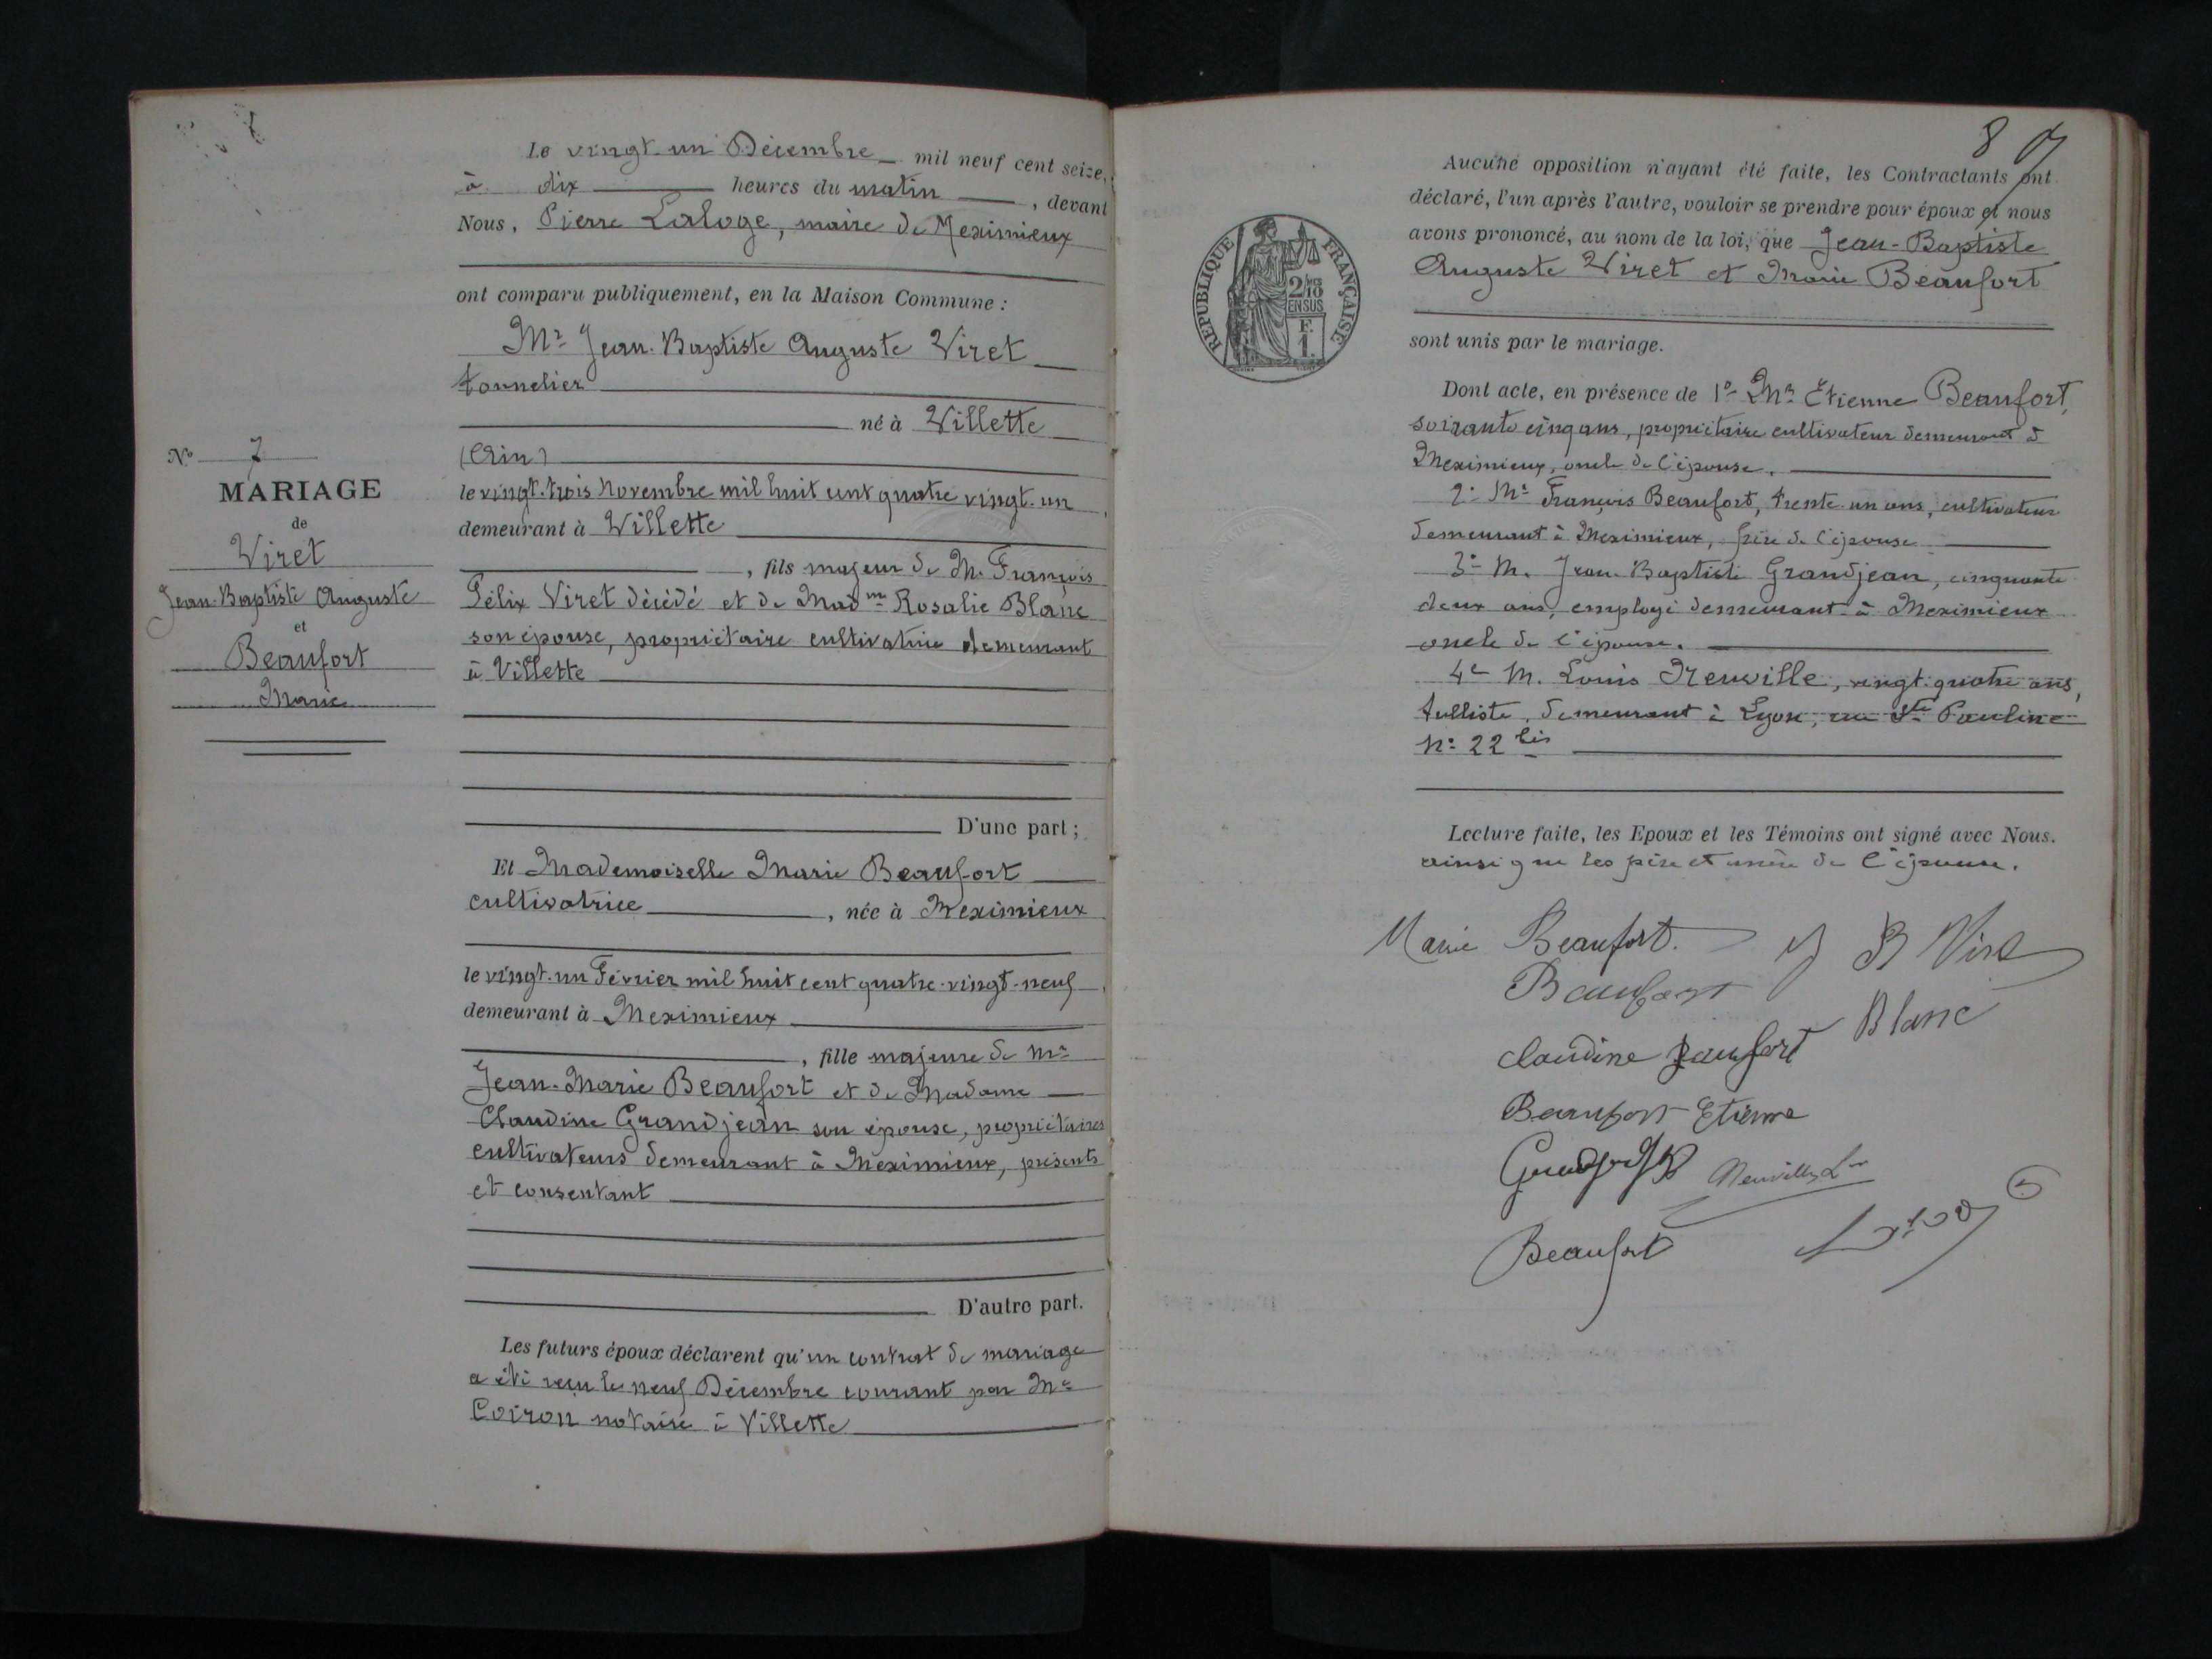 Le vingt-un Décembre mil neuf cent seize,
à dix heures du matin, devant
Nous, Pierre Laloge, maire de Meximieux
ont comparu publiquement, en la Maison Commune :
Mr Jean-Baptiste Auguste Viret
tonnelier
né à Villette
(Ain)
le vingt-trois Novembre mil huit cent quatre vingt-un
demeurant à Villette
, fils majeur de M. François
Félix Viret décédé et de Madme Rosalie Blanc
son épouse, propriétaire cultivatrice demeurant
à Villette
D'une part ;
Et Mademoiselle Marie Beaufort
cultivatrice, née à Meximieux
le vingt-un Février mil huit cent quatre-vingt-neuf
demeurant à Meximieux
, fille majeure de Mr
Jean-Marie Beaufort et de Madame
Claudine Grandjean son épouse, propriétaires
cultivateurs demeurant à Meximieux, présents
et consentant
D'autre part.
Les futurs époux déclarent qu'un contrat de mariage
a été reçu le neuf Décembre courant par Me
Coiron notaire à Villette
No 7
MARIAGE
de
Viret
Jean-Baptiste Auguste
et
Beaufort
Marie
8
Aucune opposition n'ayant été faite, les Contractants ont
déclaré, l'un après l'autre, vouloir se prendre pour époux et nous
avons prononcé, au nom de la loi, que Jean-Baptiste
Auguste Viret et Marie Beaufort
sont unis par le mariage.
REPUBLIQUE FRANÇAISE
2/10
EN SUS
F.
1.
Dont acte, en présence de 1o Mr Etienne Beaufort,
soixante cinq ans, propriétaire cultivateur demeurant à
Meximieux, oncle de l'épouse.
2o Mr François Beaufort, trente-un ans, cultivateur
demeurant à Meximieux, frère de l'épouse
3o M. Jean-Baptiste Grandjean, cinquante
deux ans, employé demeurant à Meximieux
oncle de l'épouse.
4e M. Louis Neuville, vingt-quatre ans,
tulliste, demeurant à Lyon, rue Ste Pauline
No 22 bis
Lecture faite, les Epoux et les Témoins ont signé avec Nous.
ainsi que les père et mère de l'épouse.
Marie Beaufort.
J B Viret
Beaufort
Blanc
claudine Baufort
Beaufort Etienne
Neuville Ls
Beaufort